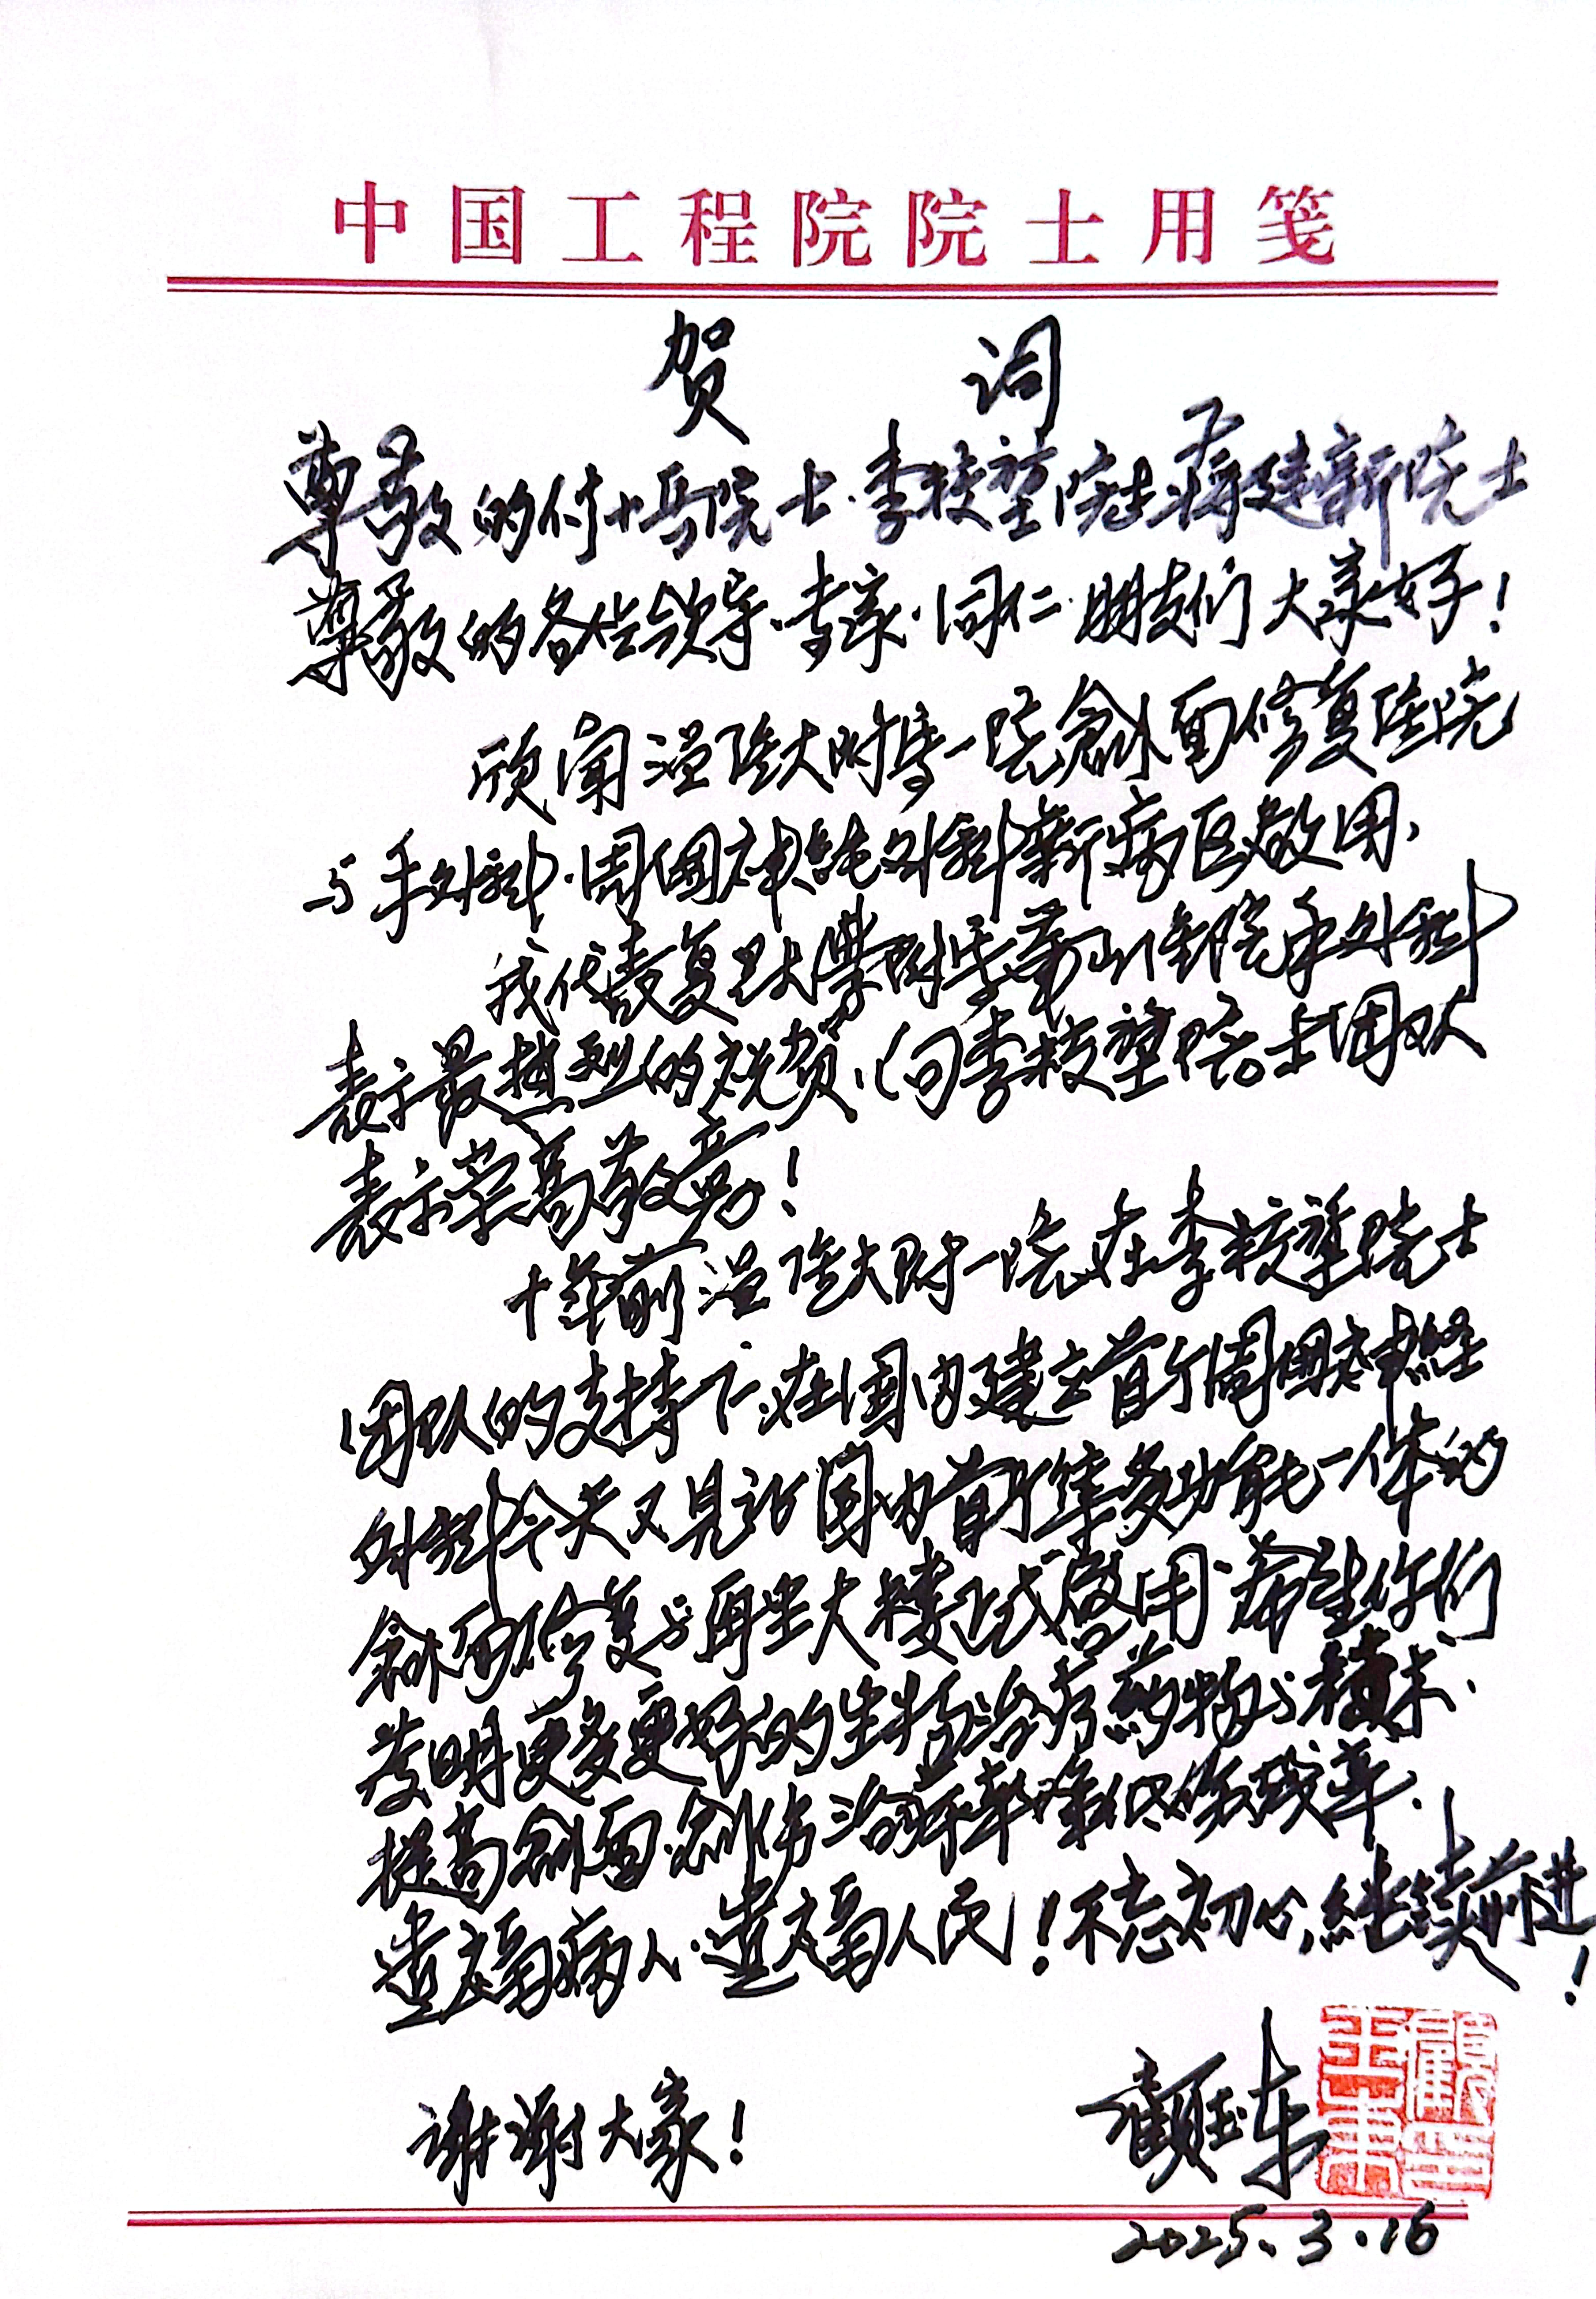 中国工程院院士用笺
贺 词
尊敬的付小兵院士、李校堃院士、蒋建新院士
尊敬的各位领导、专家、同仁、朋友们大家好！
欣闻温医大附属一院创面修复医院
与手外科、周围神经外科新病区启用、
我代表复旦大学附属华山医院手外科
表示最热烈的祝贺、向李校堃院士团队
表示崇高敬意！
十年前温医大附一院在李校堃院士
团队的支持下、在国内建立首个周围神经
外科今天又见证国内首个集多功能一体的
创面修复与再生大楼正式启用、希望你们
发明更多更好的生物治疗药物与技术、
提高创面、创伤治愈率降低伤残率、
造福病人、造福人民！不忘初心，继续前进！
谢谢大家！
顾玉东
顾玉东
2025.3.16